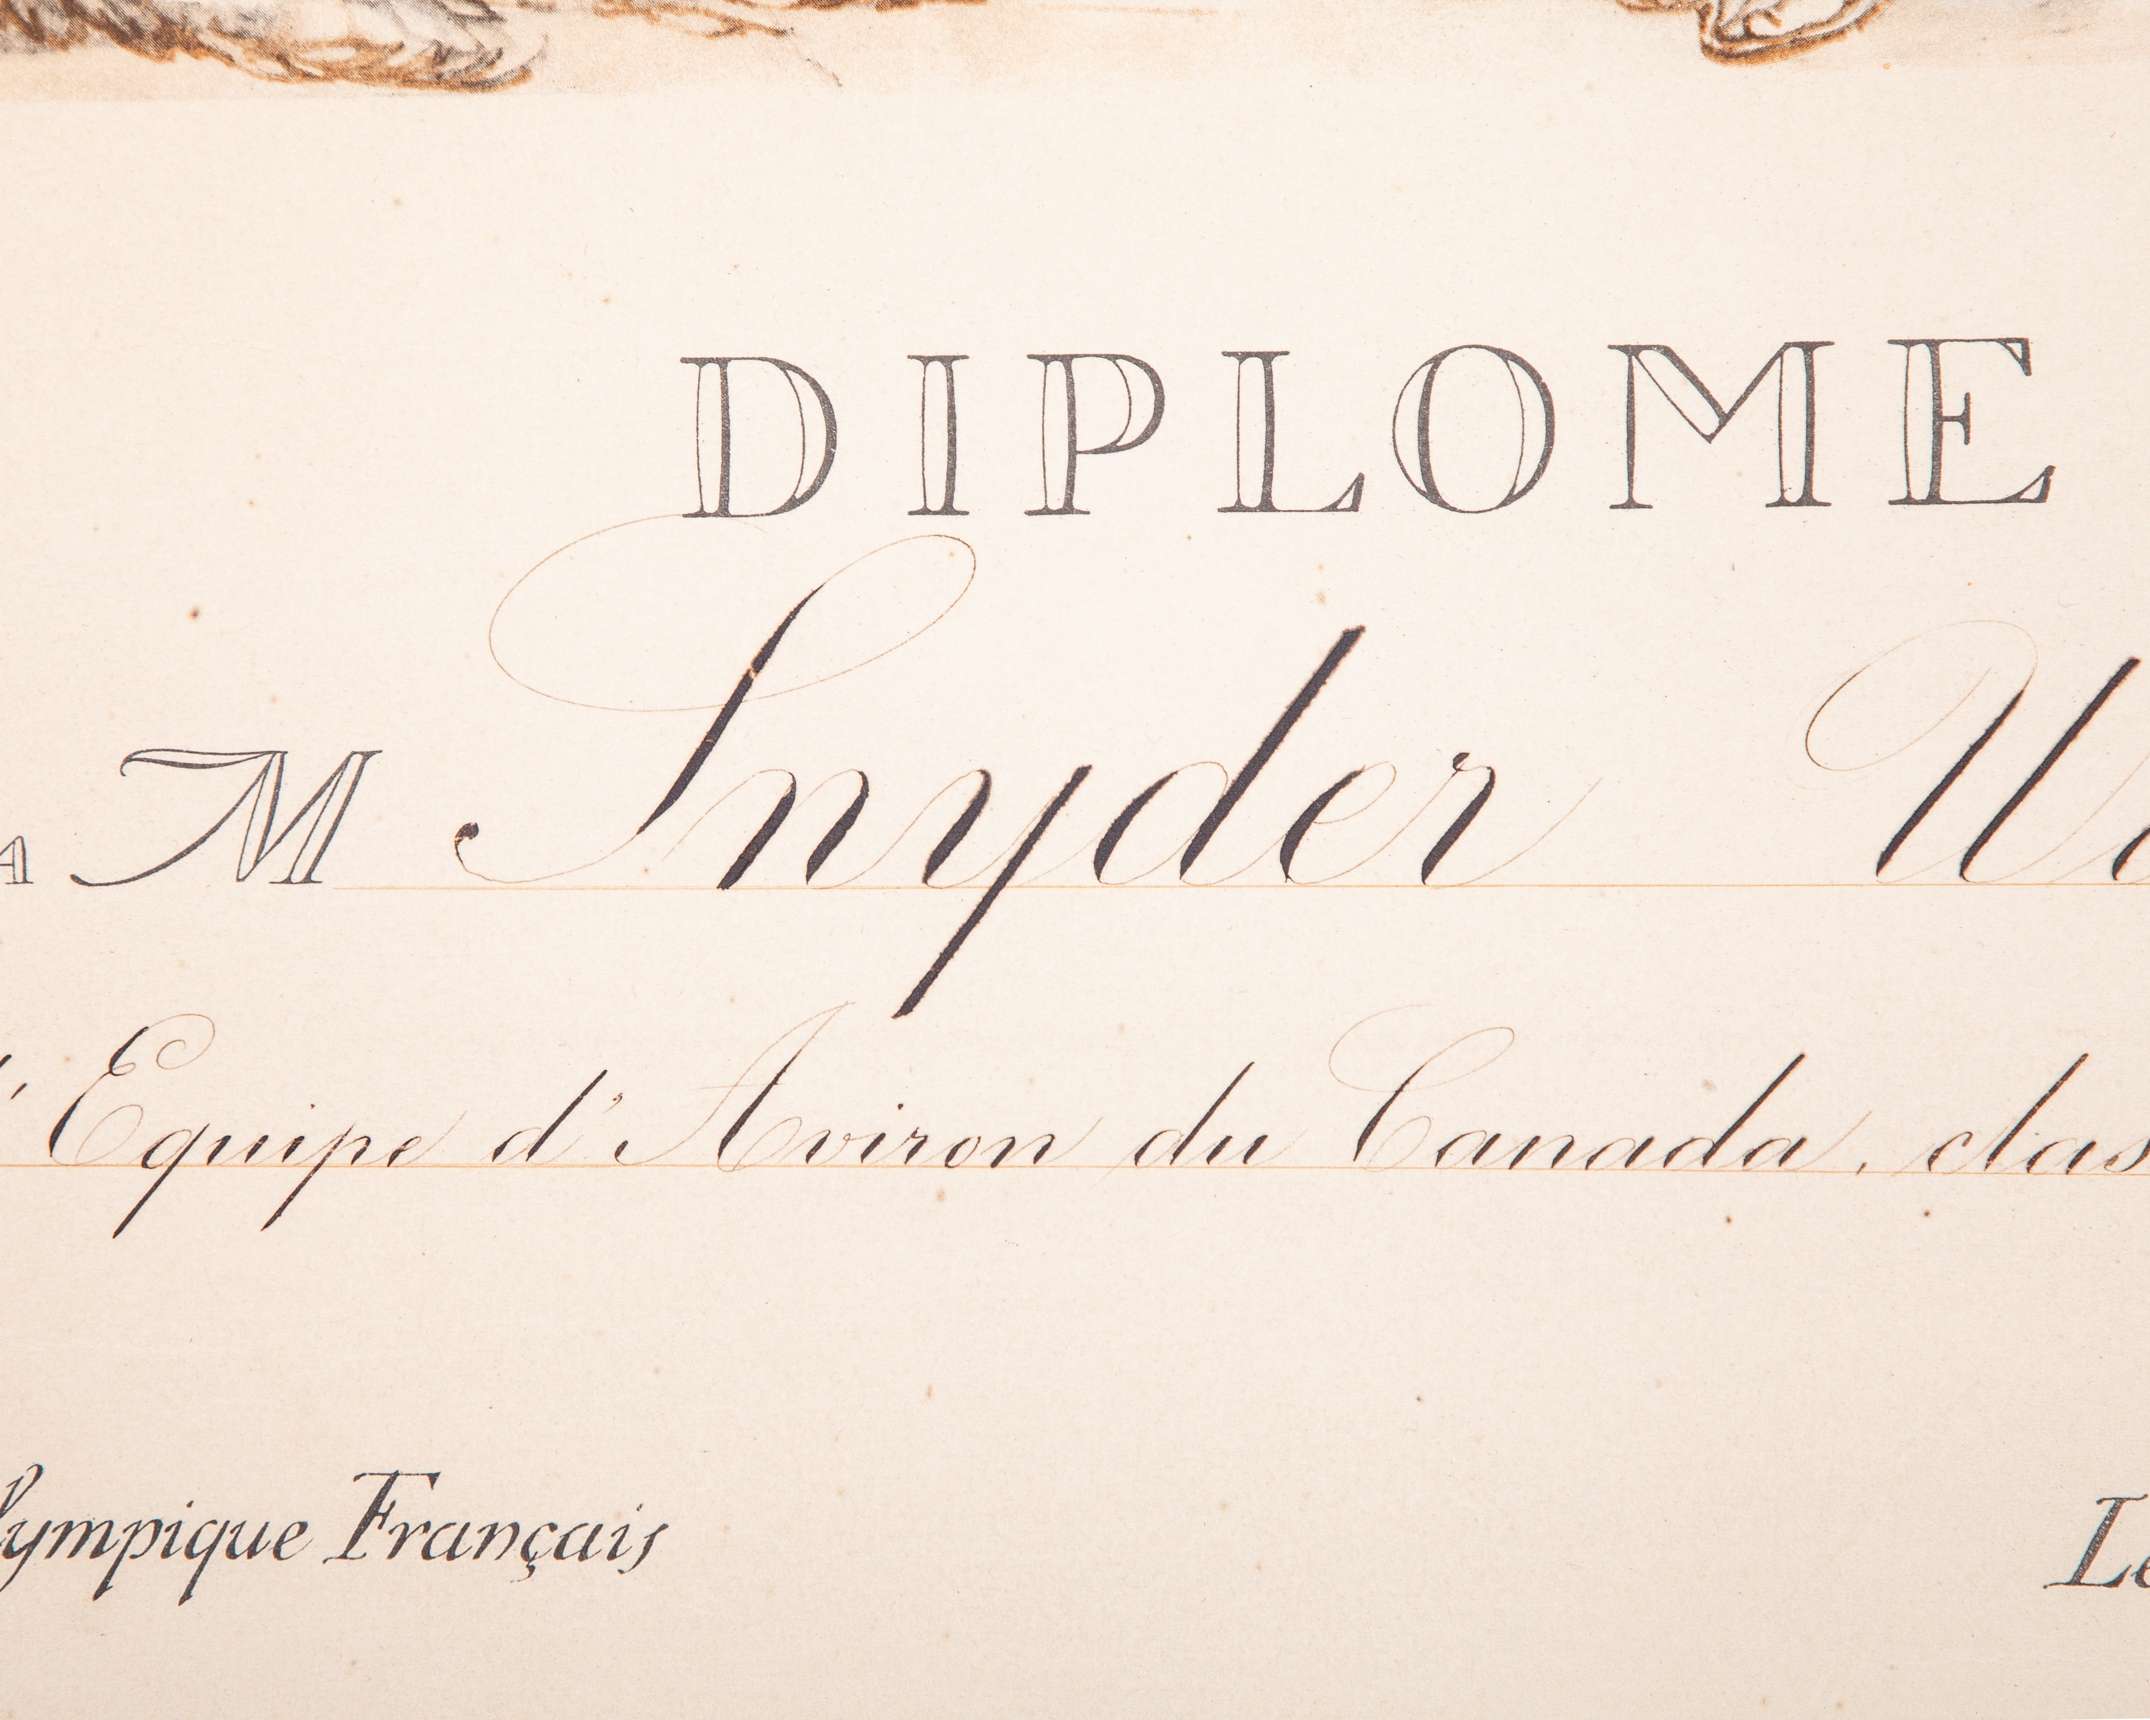 DIPLOME
A M Snyder
l'Equipe d'Aviron du Canada, clas
lympique Français Le